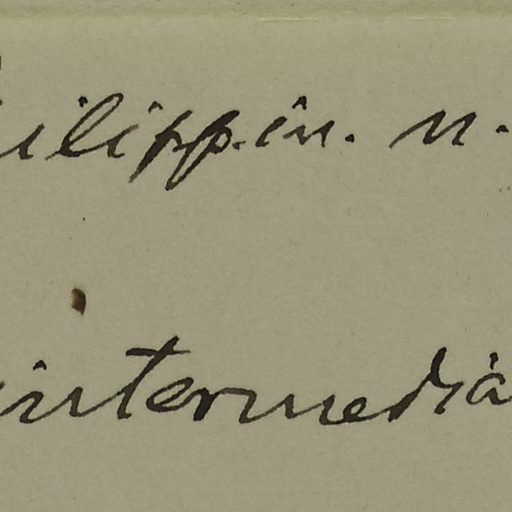 ilippin. n.
intermedia